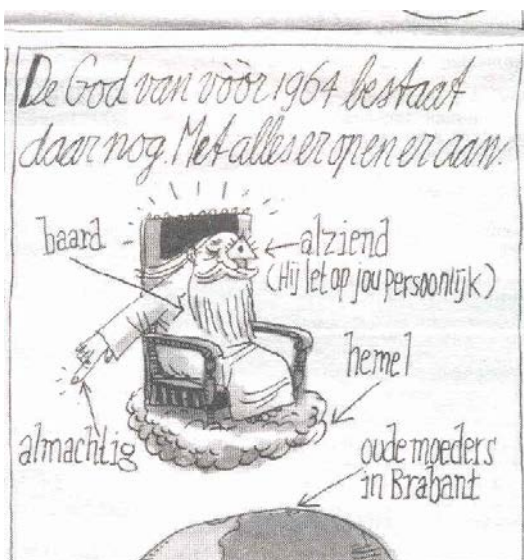 De God van vòòr 1964 bestaat
daar nog. Met alles er op en er aan.
baard
alziend
(Hij let op jou persoonlijk)
hemel
almachtig
oude moeders
in Brabant